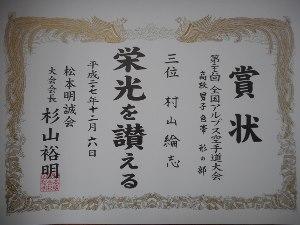 賞状
全国アルプス空手道大会
高級男子色帯 形の部
三位 村山綸志
栄光を讃える
平成二七年十二月六日
松本明誠会
大会会長 杉山裕明